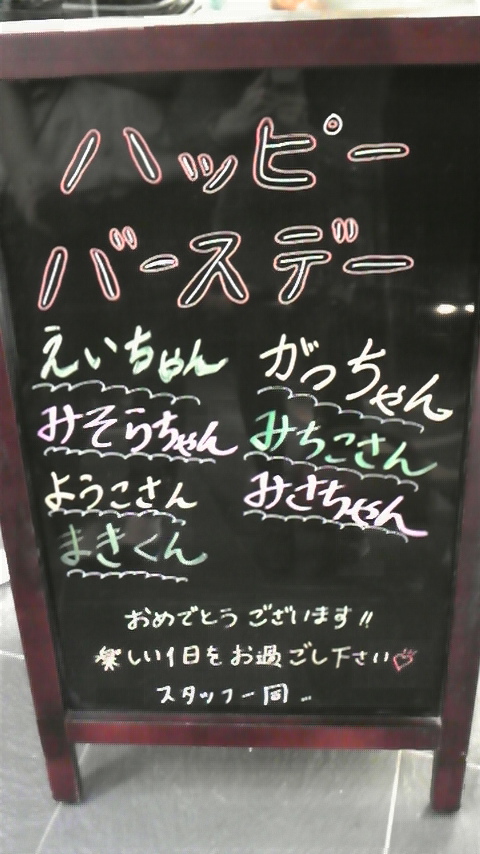 ハッピー
バースデー
えいちゃん がっちゃん
みそらちゃん みちこさん
ようこさん みさちゃん
まきくん
おめでとうございます!!
楽しい1日をお過ごし下さい♡
スタッフ一同…